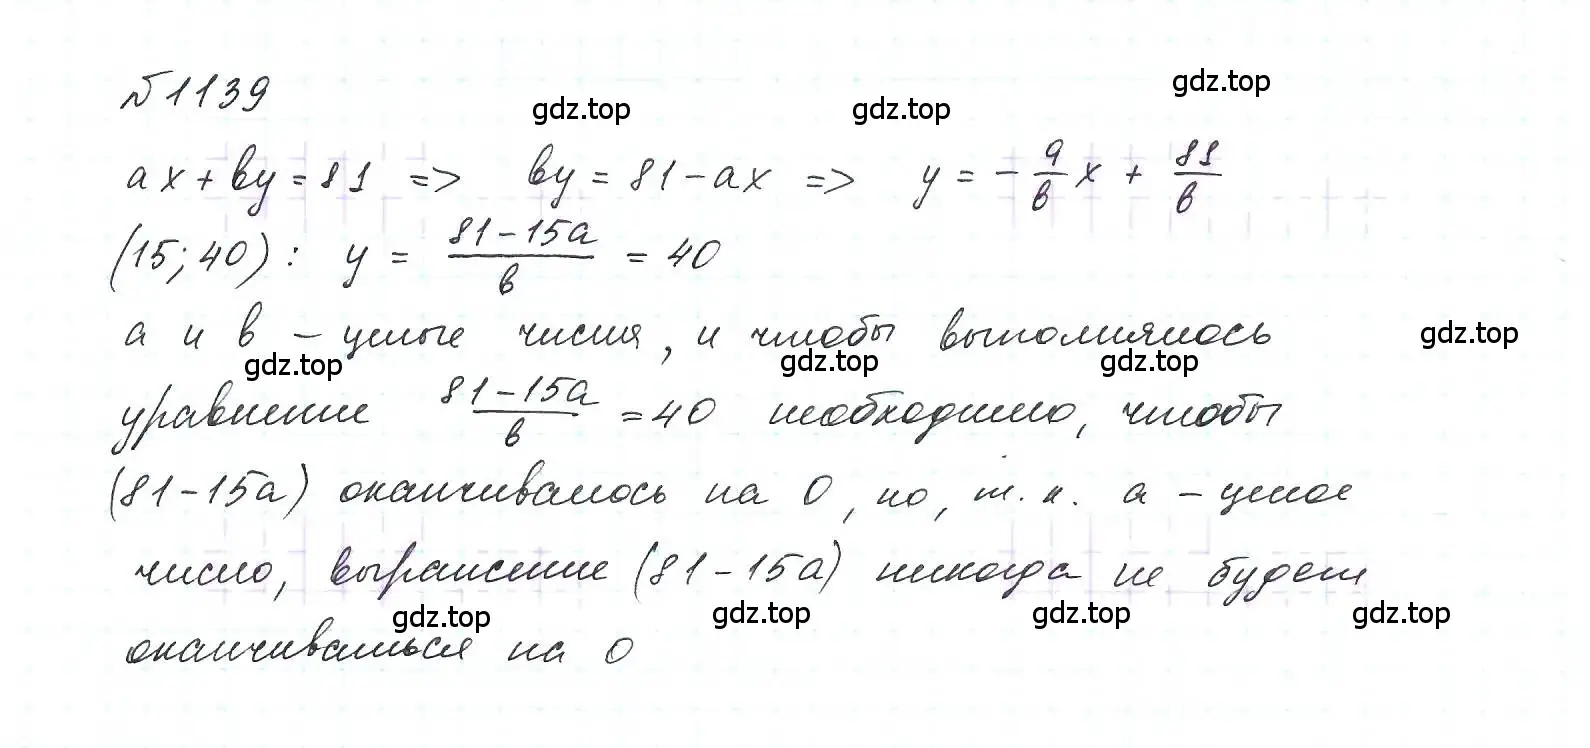 №1139
gdz.top
gdz.top gdz.top
ax + by = 81 => by = 81 - ax => y = - a/b x + 81/b
(15; 40): y = (81-15a)/b = 40
a и b - целые числа, и чтобы выполнялось
gdz.top gdz.top gdz.top gdz.top
уравнение (81-15a)/b = 40 необходимо, чтобы
(81-15a) оканчивалось на 0, но, т. к. a - целое
число, выражение (81-15a) никогда не будет
gdz.top gdz.top gdz.top gdz.top
оканчиваться на 0